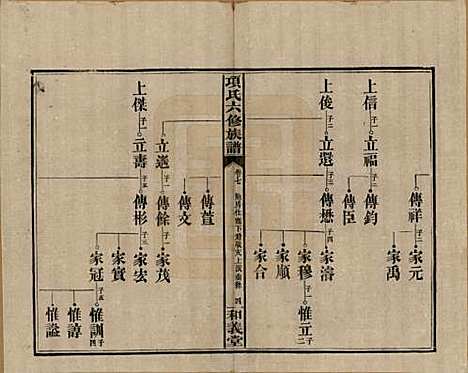 上信 子一
上俊 子二
立福 子二
立還 子三
傳祥 子二
傳鈞
傳臣
傳懋 子四
家元
家禹
家濤
家穆 子一
家順
家合
惟立 子二
項氏六修族譜
卷七
四
和義堂
上傑 子一
立壽 子五
立邈 子一
傳萱
傳文
傳餘 子一
傳彬 子三
家茂
家宏
家實
家冠 子五
惟訓 子四
惟諄
惟謚